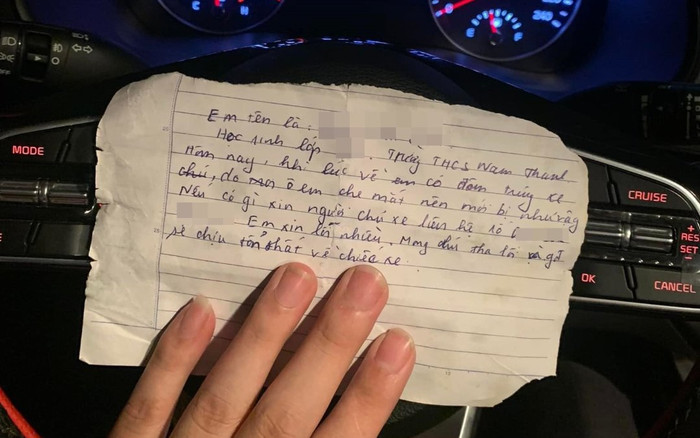 Em tên là:
Học sinh lớp . Trường THCS Nam Thanh
Hôm nay, khi lúc về em có đâm trúng xe
chú, do ô em che mắt nên mới bị như vậy
Nếu có gì xin người chủ xe liên hệ số
Em xin lỗi nhiều, Mong chú tha lỗi
sẽ chịu tổn thất về chiếc xe.
MODE
CRUISE
RES
SET
OK
CANCEL
C
H
E
F
240